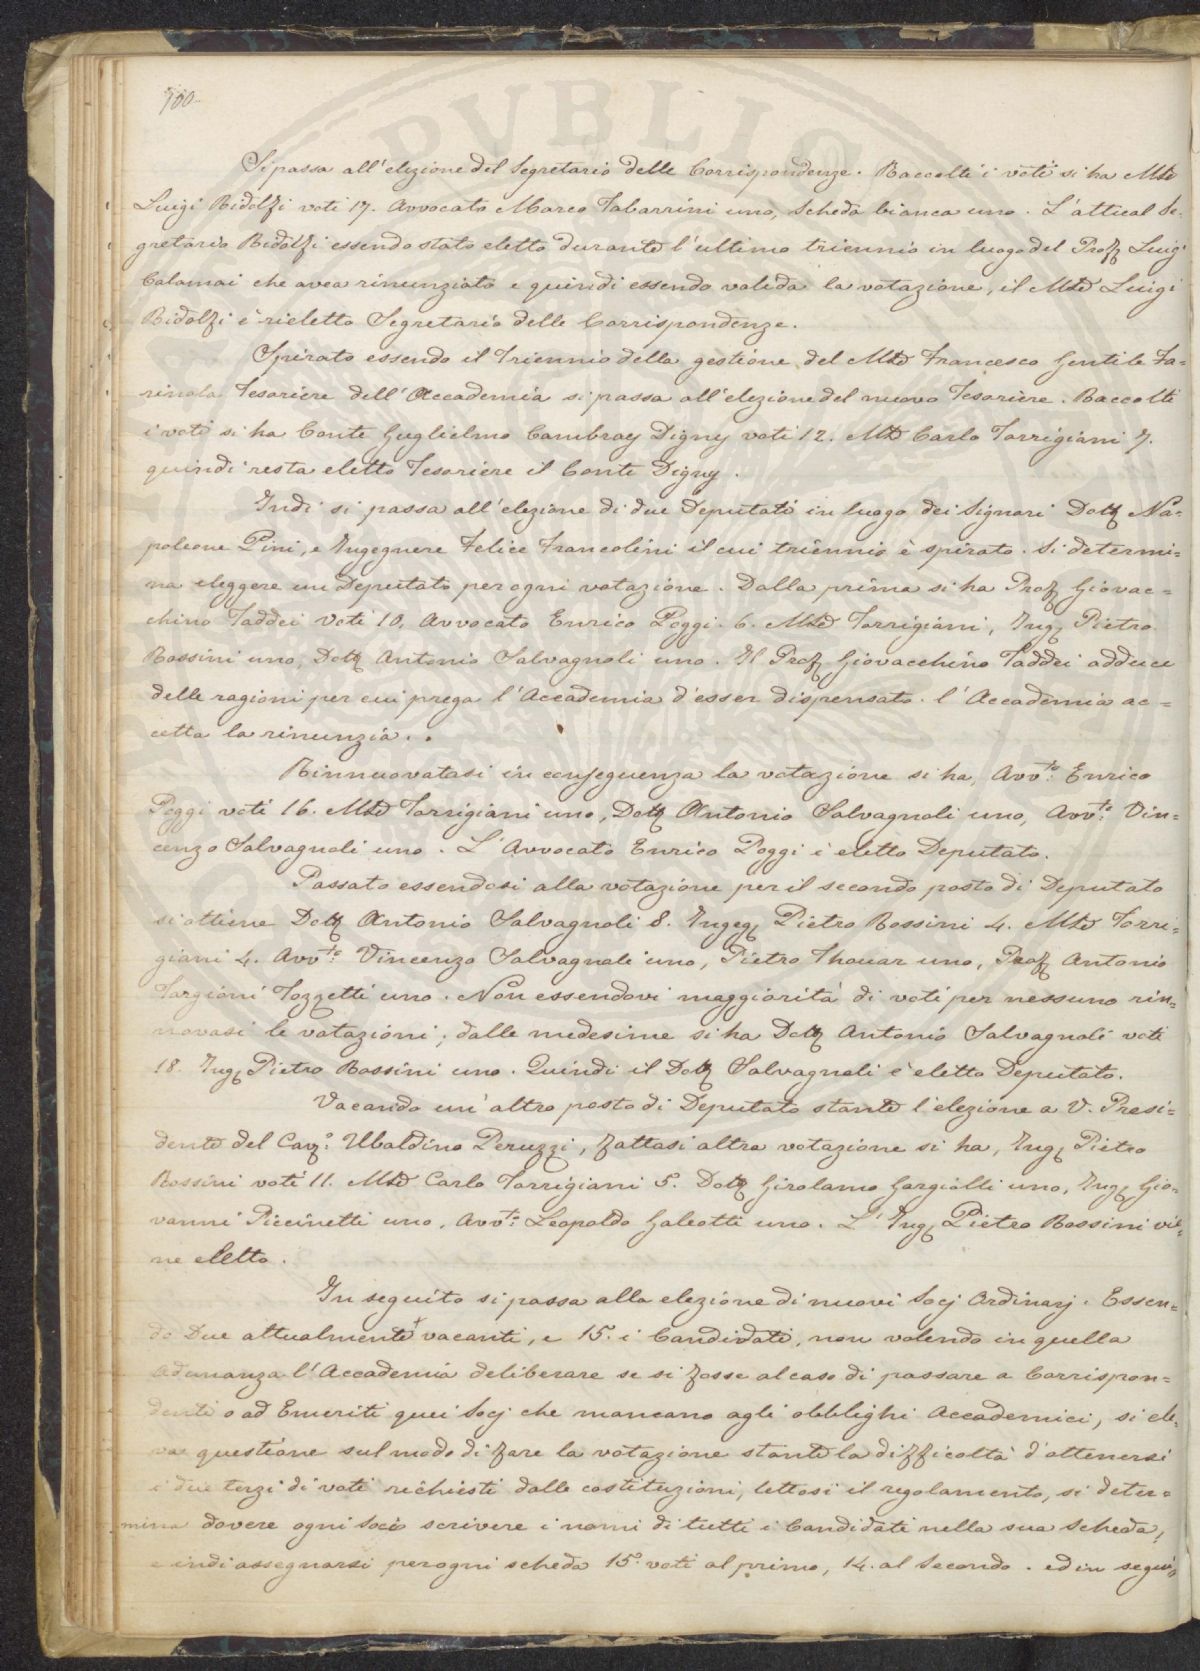 100
Si passa all'elezione del Segretario delle Corrispondenze. Raccolti i voti si ha Mse
Luigi Ridolfi voti 17. Avvocato Marco Tabarrini uno, scheda bianca uno. L'attual Se-
gretario Ridolfi essendo stato eletto durante l'ultimo triennio in luogo del Prof Luigi
Calamai che avea rinunziato e quindi essendo valida la votazione, il Mse Luigi
Ridolfi è rieletto Segretario delle Corrispondenze.
Spirato essendo il Triennio della gestione del Mse Francesco Gentile Fa=
rinola Tesoriere dell'Accademia si passa all'elezione del nuovo Tesoriere. Raccolti
i voti si ha Conte Guglielmo Cambray Digny voti 12. Mse Carlo Torrigiani 7.
quindi resta eletto Tesoriere il Conte Digny.
Indi si passa all'elezione di due Deputati in luogo dei Signori Dott Na=
poleone Pini, e Ingegnere Felice Francolini il cui triennio è spirato. Si determi=
na eleggere un Deputato per ogni votazione. Dalla prima si ha Prof Giovac=
chino Taddei Voti 10, Avvocato Enrico Poggi. 6. Mse Torrigiani, Ing Pietro
Rossini uno, Dott Antonio Salvagnoli uno. Il Prof Giovacchino Taddei adduce
delle ragioni per cui prega l'Accademia d'esser dispensato. l'Accademia ac=
cetta la rinunzia..
Rinnuovatasi in conseguenza la votazione si ha, Avvto: Enrico
Poggi voti 16. Mse Torrigiani uno, Dott Antonio Salvagnoli uno, Avvto: Vin=
cenzo Salvagnoli uno. L'Avvocato Enrico Poggi è eletto Deputato.
Passato essendosi alla votazione per il secondo posto di Deputato
si ottiene Dott Antonio Salvagnoli 8. Ingeg Pietro Rossini 4. Mse Torri=
giani 4. Avvto: Vincenzo Salvagnole uno, Pietro Thouar uno, Prof Antonio
Targioni Tozzetti uno. Non essendovi maggiorità di voti per nessuno rin=
novasi le votazioni; dalle medesime si ha Dott Antonio Salvagnoli voti
18. Ing Pietro Rossini uno. Quindi il Dott Salvagnoli è eletto Deputato.
Vacando un'altro posto di Deputato stante l'elezione a V. Presi=
dente del Cav: Ubaldino Peruzzi, fattasi altra votazione si ha, Ing Pietro
Rossini voti 11. Mse Carlo Torrigiani 5. Dott Girolamo Gargiolli uno, Ing Gio=
vanni Piccinetti uno, Avvto: Leopoldo Galeotti uno. L'Ing Pietro Rossini vie=
ne eletto.
In seguito si passa alla elezione di nuovi Socj Ordinarj. Essen=
do Due attualmente vacanti, e 15. i Candidati, non volendo in quella
Adunanza l'Accademia deliberare se si fosse al caso di passare a Corrispon=
denti o ad Emeriti quei Socj che mancano agli obblighi Accademici, si ele=
va questione sul modo di fare la votazione stante la difficoltà d'ottenersi
i due terzi di voti richiesti dalle costituzioni; lettosi il regolamento, si deter=
mina dovere ogni Socio scrivere i nomi di tutti i Candidati nella sua Scheda,
e indi assegnarsi per ogni scheda 15. voti al primo, 14. al Secondo. ed in seguito